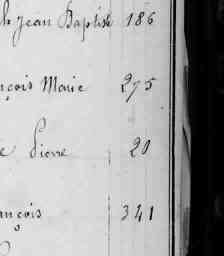 Jean Baptiste 186
nçois Marie 275
e Pierre 20
ançois 341